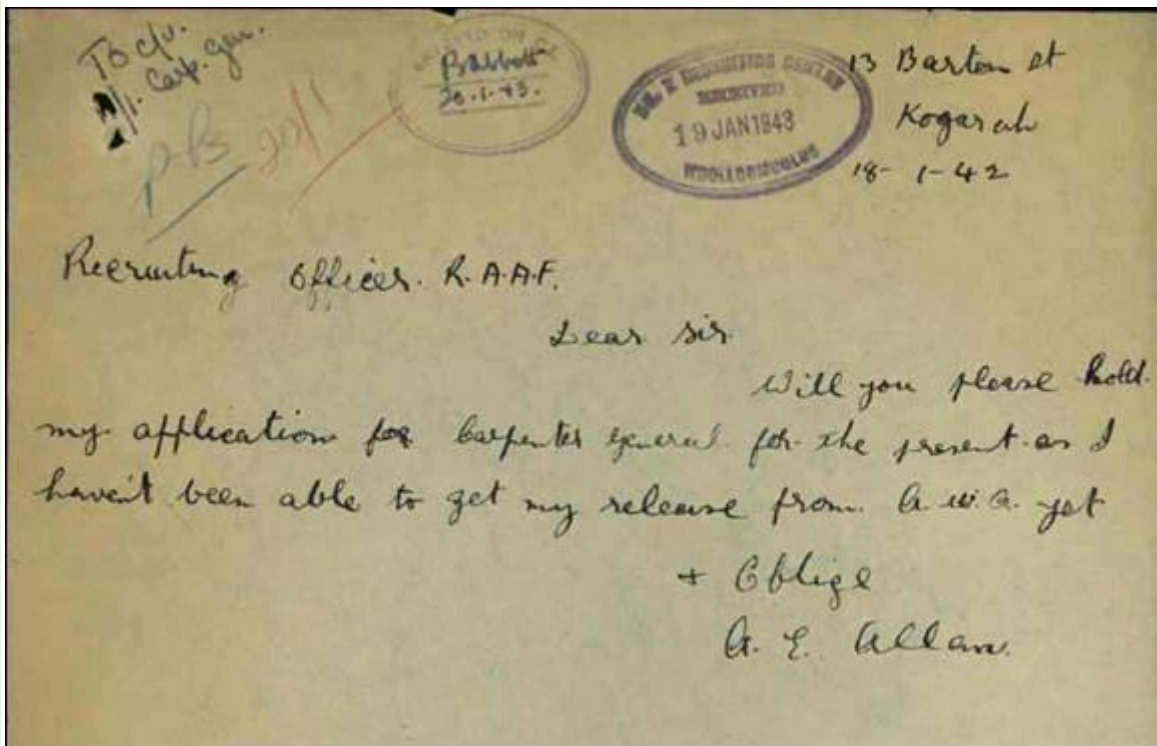 To c/o.
Carp. Gen.
20/1
20.1.43.
RECRUITING CENTRE
RECEIVED
19 JAN 1943
WOOLLOOMOOLOO
13 Barton St
Kogarah
18-1-42
Recruiting Officer. R.A.A.F.
Dear Sir
Will you please hold.
my application for Carpenter General for the present as I
haven't been able to get my release from A.W.A. yet
+ Oblige
A. E. Allan.